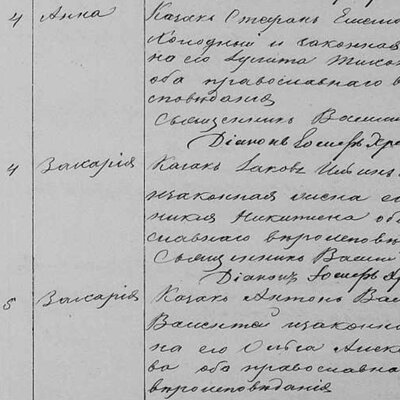 4 Анна Казакъ Стефанъ Емель
Холодный и законная
на его
оба православнаго в
сповѣданія
Священникъ Васил
Діаконъ Іосифъ Хре
4 Захарія Казакъ Іаковъ
и законная жена ег
Никитина оба
славнаго вѣроисповѣ
Священникъ Васил
Діаконъ Іосифъ Хр
5 Захарія Казакъ Антонъ Вас
и законна
на его Ольга Алекс
ва оба православна
вѣроисповѣданія